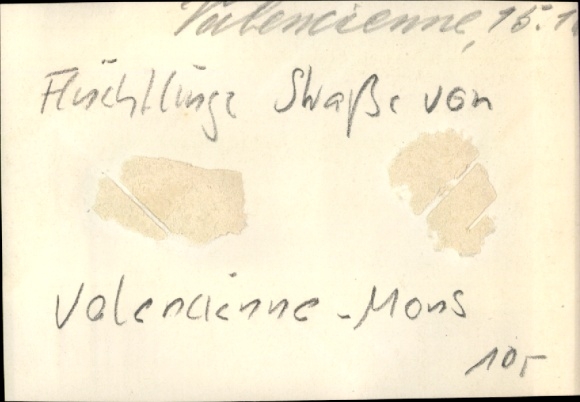 Valencienne, 15.1
Flüchtlinge Straße von
Valencienne - Mons
10,-